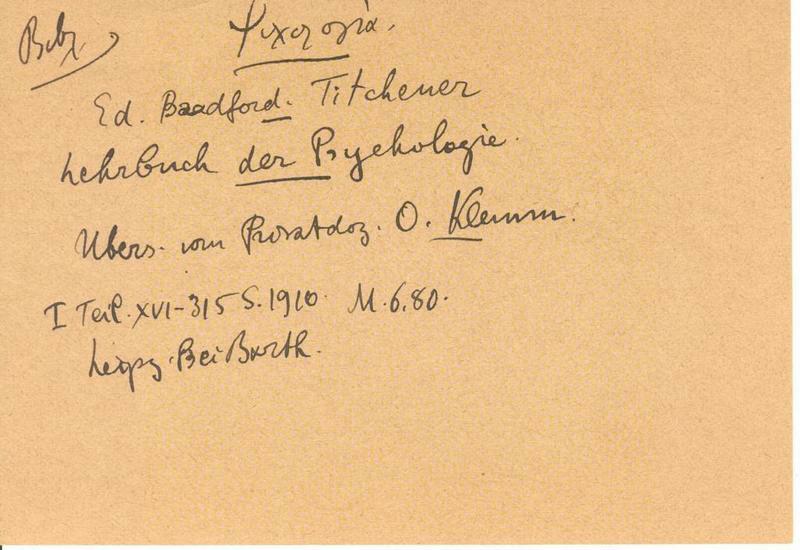 Βιβλ. Ψυχολογία.
Ed. Bradford. Titchener
Lehrbuch der Psychologie.
Übers. vom Privatdoz. O. Klemm.
I Teil. XVI-315 S. 1910. M. 6.80.
Leipz. Bei Barth.